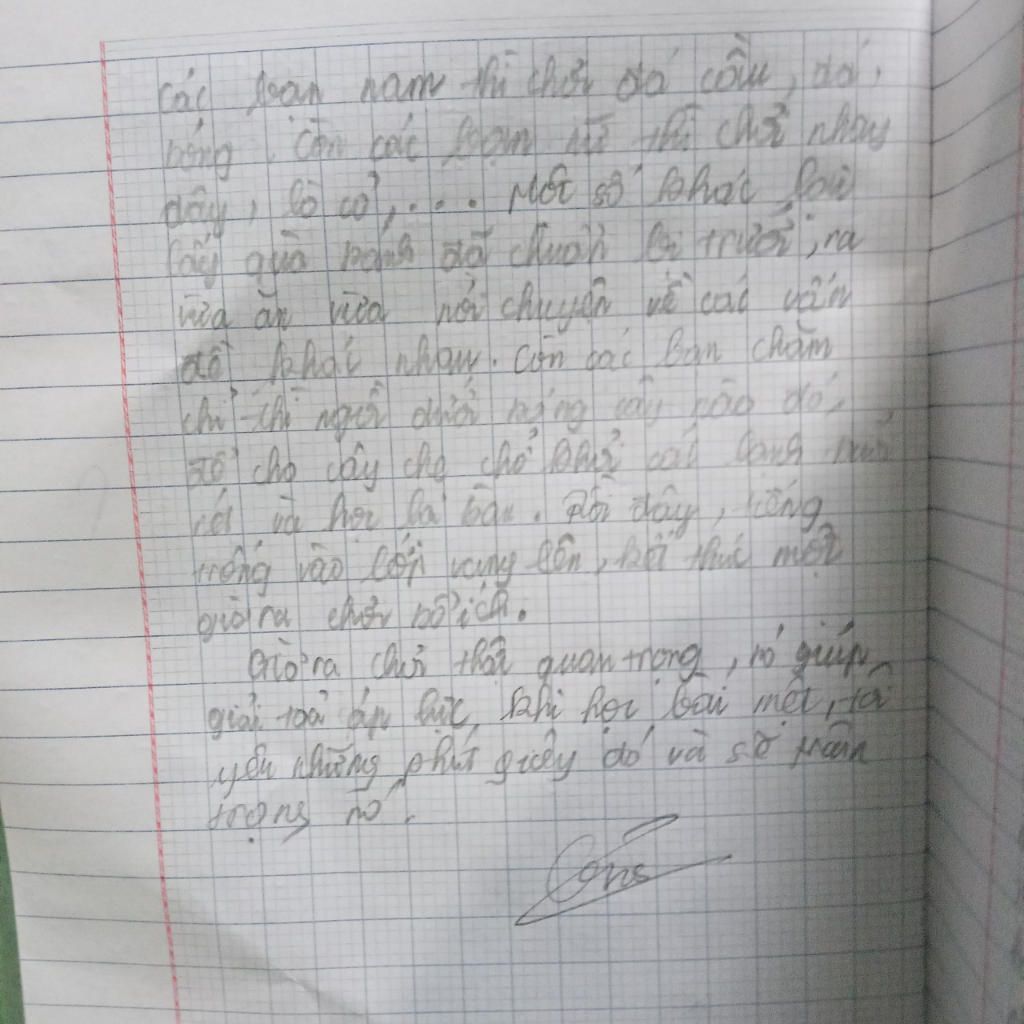 các bạn nam thì chơi đá cầu, đá
bóng. Còn các bạn nữ thì chơi nhảy
dây, lò cò, .... Một số khác lại
lấy quà bánh đã chuẩn bị trước, ra
vừa ăn vừa nói chuyện về các vấn
đề khác nhau. Còn các bạn chăm
chỉ thì ngồi dưới bóng cây nào đó,
để cho cây che chở khỏi cái
rét và học bài. Rồi đây, tiếng
trống vào lớp vang lên, kết thúc một
giờ ra chơi bổ ích.
Giờ ra chơi thật quan trọng, nó giúp
giải toả áp lực khi học bài mệt, tôi
yêu những phút giây đó và sẽ trân
trọng nó.